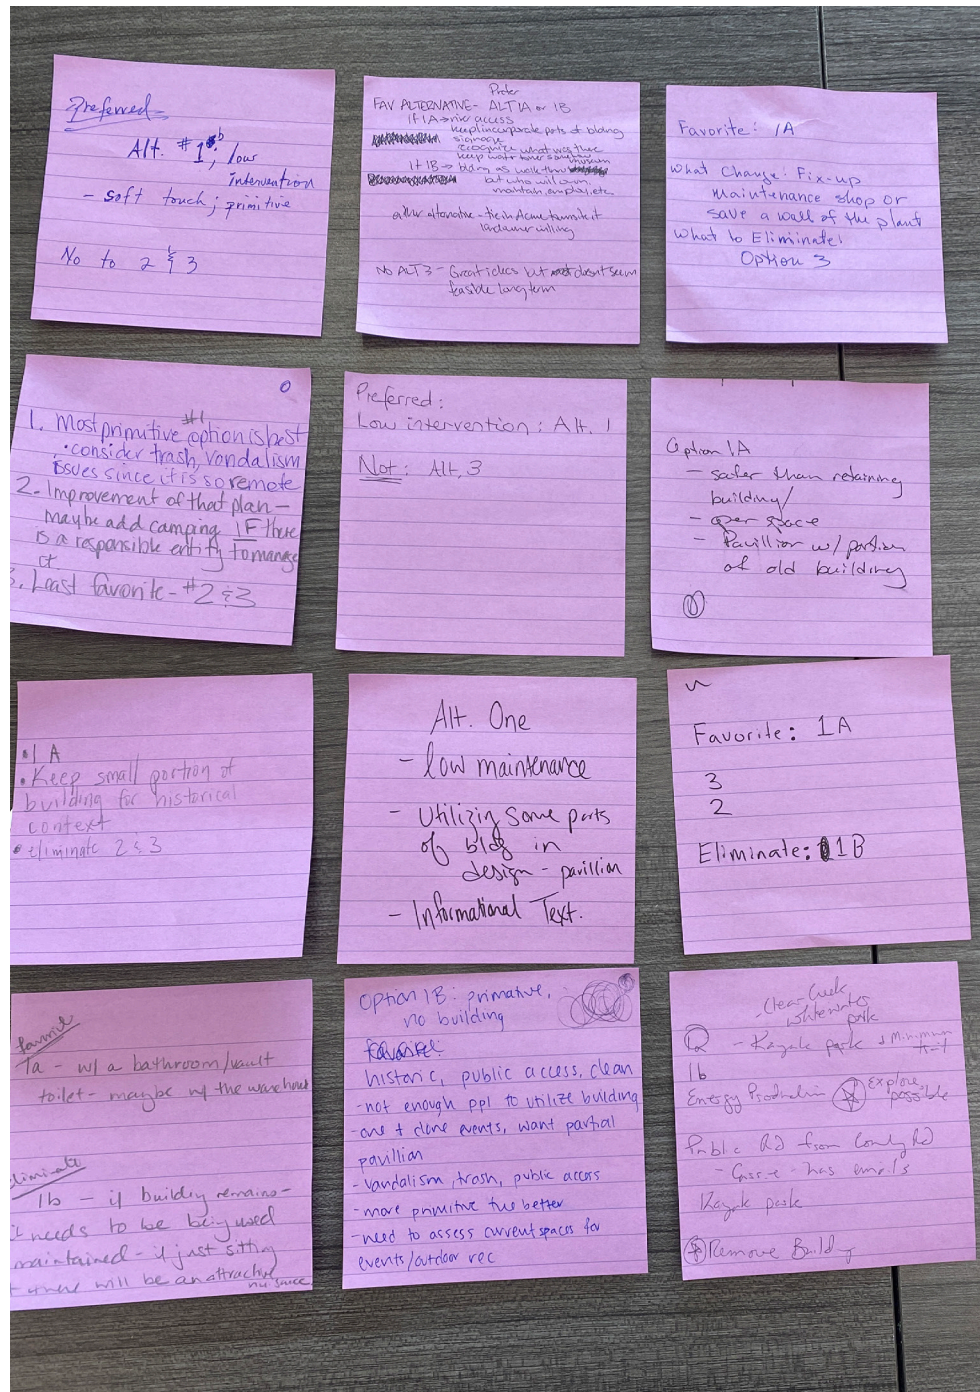 Preferred
Alt. #1 b; low
intervention
- soft touch; primitive
No to 2 & 3
Prefer
FAV ALTERNATIVE - ALT 1A or 1B
If 1A → river access
keep/incorporate parts of bldng
signage
recognize what was there
keep water tower
If 1B → bldng as walk-thru museum
but who will own,
maintain, employ, etc
either alternative - tie in Acme
landowner willing
NO ALT 3 - Great ideas but doesn't seem
feasible long term
Favorite: 1A
What Change: Fix-up
maintenance shop or
save a wall of the plant
What to Eliminate:
Option 3
#1
1. Most primitive option is best
• consider trash, vandalism
issues since it is so remote
2. Improvement of that plan -
maybe add camping IF there
is a responsible entity to manage
it.
3. Least favorite - #2 & 3
Preferred:
Low intervention: Alt. 1
Not: Alt. 3
Option 1A
- safer than retaining
building/
- open space
- Pavillion w/ portion
of old building
• 1A
• Keep small portion of
building for historical
context
• eliminate 2 & 3
Alt. One
- low maintenance
- Utilizing some parts
of bldg in
design - pavillion
- Informational Text.
Favorite: 1A
3
2
Eliminate: 1B
favorite
1a - w/ a bathroom/vault
toilet - maybe w/ the warehouse
eliminate
1b - if building remains -
it needs to be being used
maintained - if just sitting
there will be an attractive
nuisance
Option 1B: primative,
no building
favorite:
historic, public access, clean
- not enough ppl to utilize building
- one + done events, want partial
pavillion
- vandalism, trash, public access
- more primitive the better
- need to assess current spaces for
events/outdoor rec
- Clear Creek
whitewater
park
1a - Kayak park + Minimum
1b
Energy Production Explore
possible
Public Rd from County Rd
- has emails
Kayak park
Remove Building